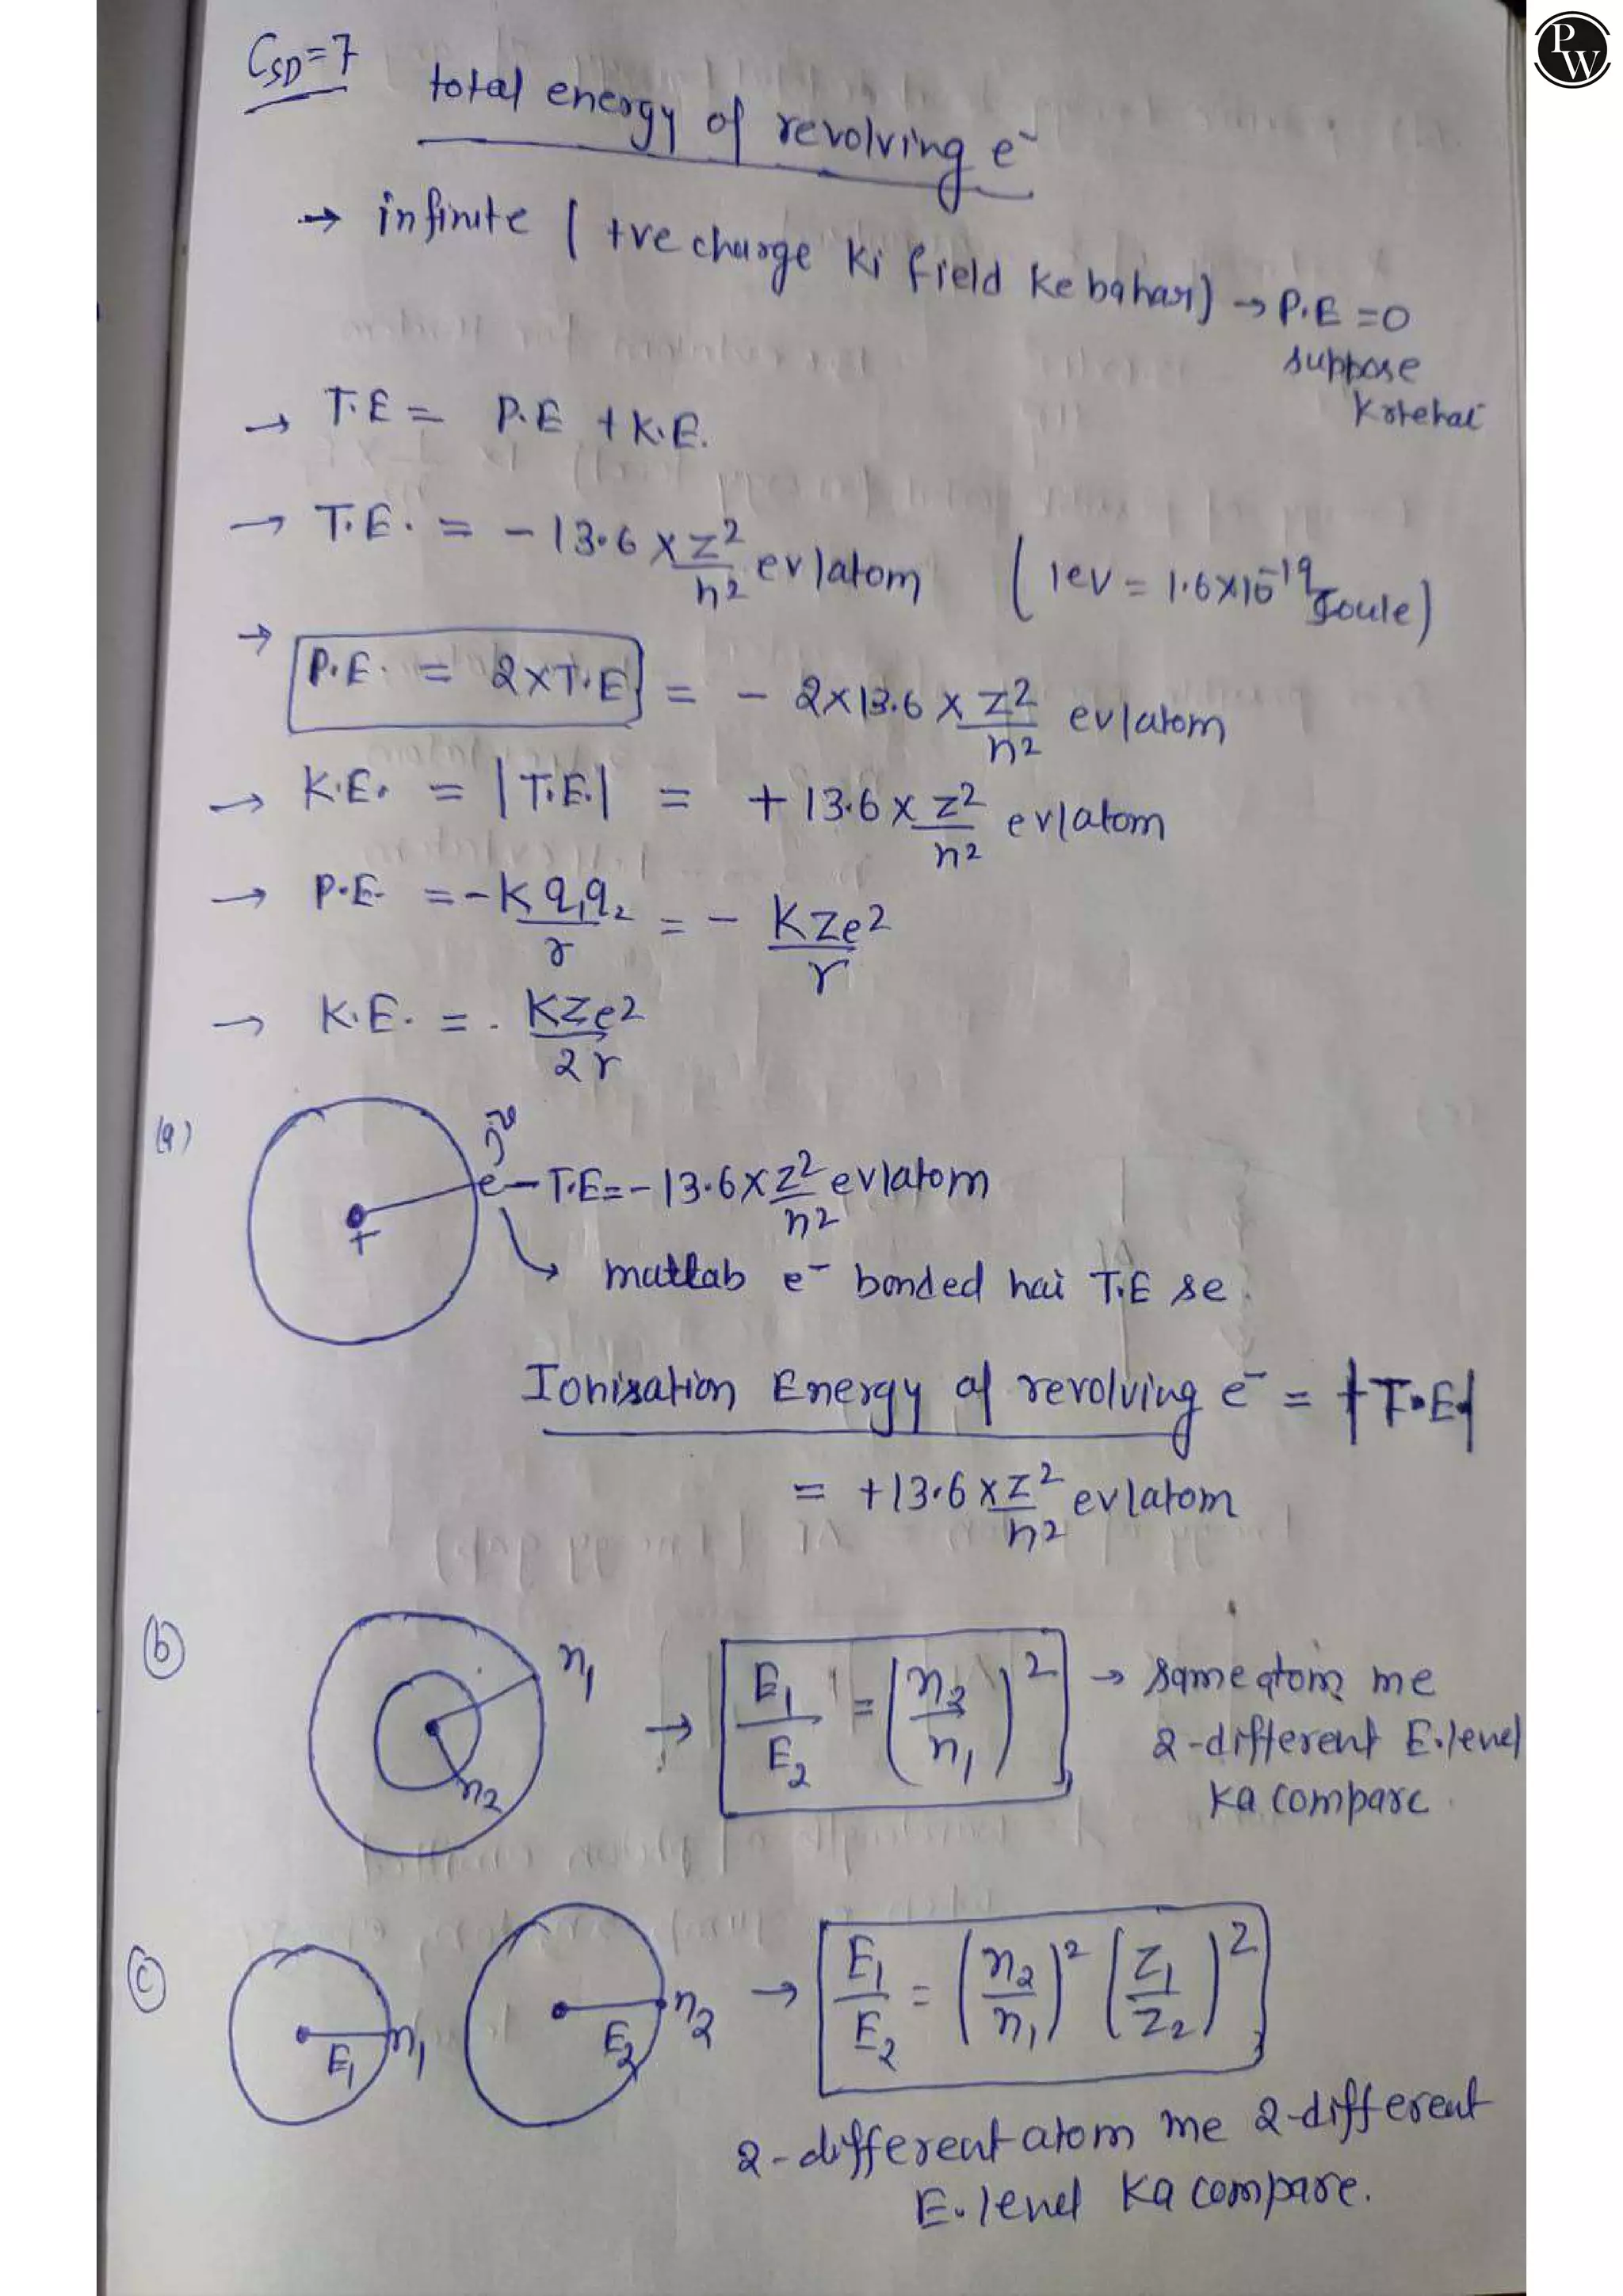 PW
CSD=7
total energy of revolving e⁻
→ infinite ( +ve charge ki field ke bahar) → P.E =0
suppose
krtehai
→ T.E = P.E + K.E.
→ T.E. = - 13.6 x z²/n² ev/atom ( 1ev = 1.6x10⁻¹⁹ Joule)
→ P.E. = 2xT.E = - 2x13.6 x z²/n² ev/atom
→ K.E. = |T.E.| = + 13.6 x z²/n² ev/atom
→ P.E. = -K q₁q₂/r = - KZe²/r
→ K.E. = KZe²/2r
(a)
e⁻ T.E = -13.6 x z²/n² ev/atom
+
matlab e⁻ bonded hai T.E se
Ionisation Energy of revolving e⁻ = |T.E.|
= +13.6 x z²/n² ev/atom
(b) n₁ → E₁/E₂ = (n₂/n₁)² → same atom me
n₂
2-different E.level
ka compare
(c) E₁ n₁ E₂ n₂ → E₁/E₂ = (n₂/n₁)² (Z₁/Z₂)²
2-different atom me 2-different
E.level ka compare.